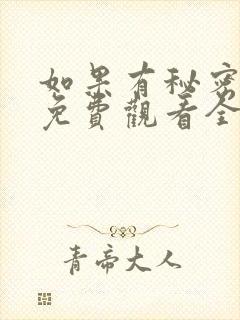 如果有秘密
免費觀看全
青帝大人